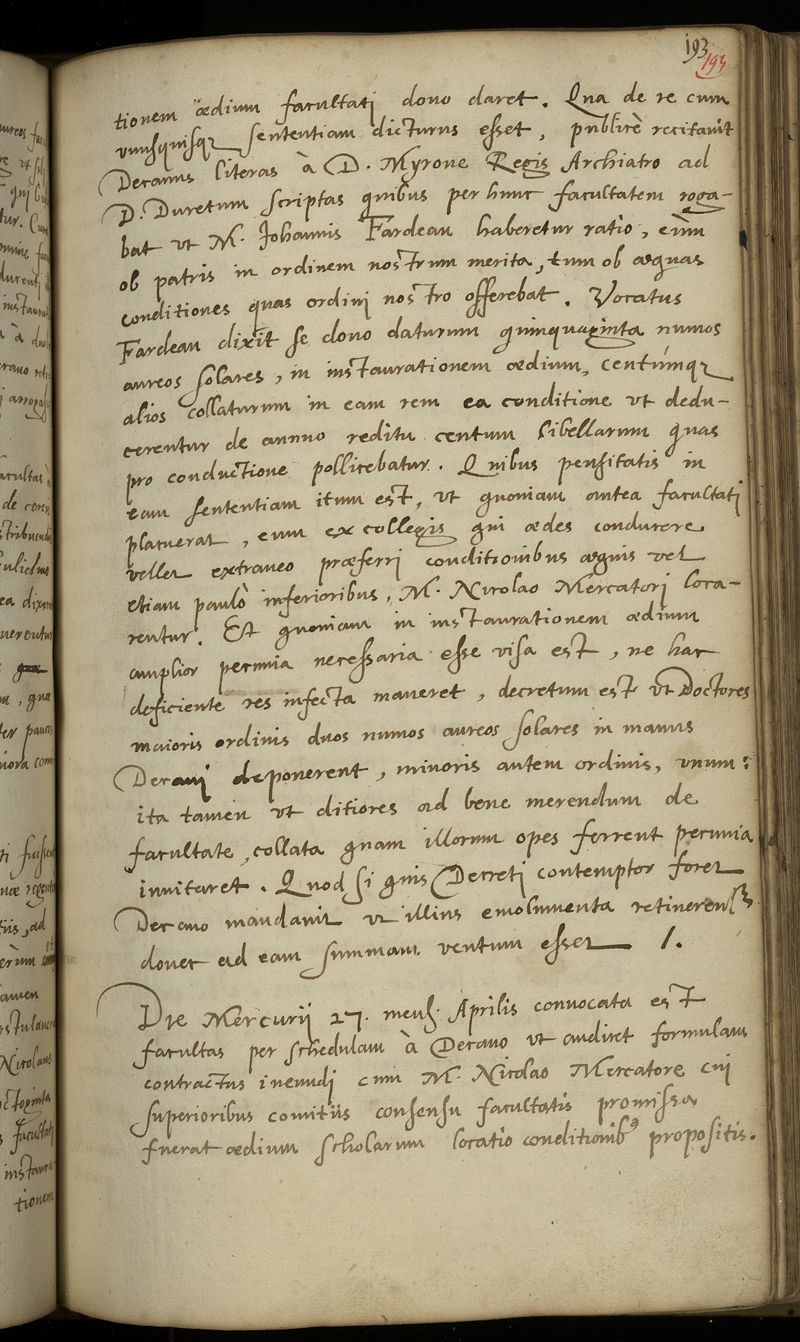 193
193
tionem ædium facultati dono daret. Qua de re cum
vnusquisq; sententiam dicturus esset, publicè recitauit
Decanus literas à D. Myrone Regis Archiatro ad
D. Duretum scriptas quibus per hunc facultatem roga-
bat ut M. Johannis Fardeau haberetur ratio, cùm
ob patris in ordinem nostrum merita, tum ob æquas
conditiones quas ordini nostro offerebat. Vocatus
Fardeau dixit se dono daturum quinquaginta numos
aureos solares, in instaurationem ædium, centúmq;
alios collaturum in eam rem ea conditione ut dedu-
cerentur de annuo reditu centum libellarum quas
pro conductione pollicebatur. Quibus pensitatis in
eam sententiam itum est, ut quoniam antea facultati
placuerat, eum ex collegis qui ædes conducere
vellet extraneo præferri conditionibus æquis vel
etiam paulò inferioribus, M. Nicolao Mercatori loca-
rentur. Et quoniam in instaurationem ædium
amplior pecunia necessaria esse visa est, ne hac
deficiente res infecta maneret, decretum est ut Doctores
maioris ordinis duos numos aureos solares in manus
Decani deponerent, minoris autem ordinis, vnum:
ita tamen ut ditiores ad bene merendum de
facultate, collata quam illorum opes ferrent pecunia
inuitaret. Quod si quis Decreti contemptor foret
Decano mandauit ut illius emolumenta retinerentur
donec ad eam summam ventum esset /.
Die Mercurij 27. mens. Aprilis conuocata est
facultas per schedulam à Decano ut audiret formulam
contractus ineundi cum M. Nicolao Mercatore cui
superioribus comitiis consensu facultatis promissa
fuerat ædium scholarum locatio conditionib9 propositis.